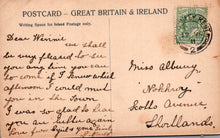 POSTCARD — GREAT BRITAIN & IRELAND
Writing Space for Inland Postage only.
Dear Winnie
we shall
be very pleased to see
you any time you can
to come if I knew which
afternoon I would meet
you in the Town
I was so glad to hear that
you are better again
love from
Miss Albury
"
Scotts Avenue
Shortlands